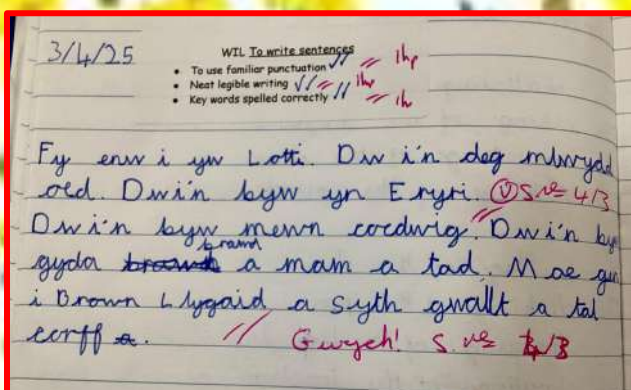 3/4/25
WIL To write sentences
• To use familiar punctuation 1hp
• Neat legible writing 1hp
• Key words spelled correctly
Fy enw i yw Lotti. Dw i'n deg mlwydd
oed. Dwi'n byw yn Eryri. 4/3
Dwi'n byw mewn coedwig. Dwi'n by
gyda brawd a mam a tad. Mae gn
i Brown Llygaid a syth gwallt a tal
corff. Gwych!